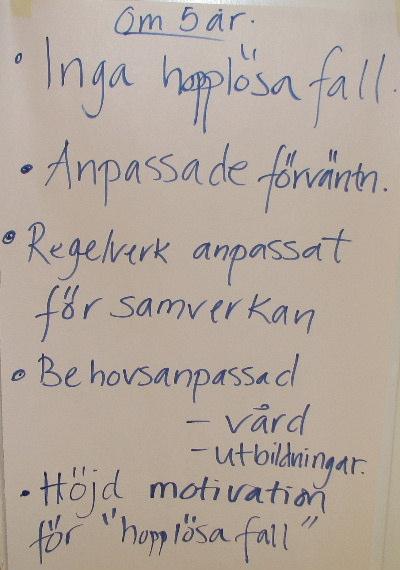 Om 5 år.
• Inga hopplösa fall.
• Anpassade förväntn.
• Regelverk anpassat
för samverkan
• Behovsanpassad
- vård
- utbildningar.
• Höjd motivation
för "hopplösa fall"